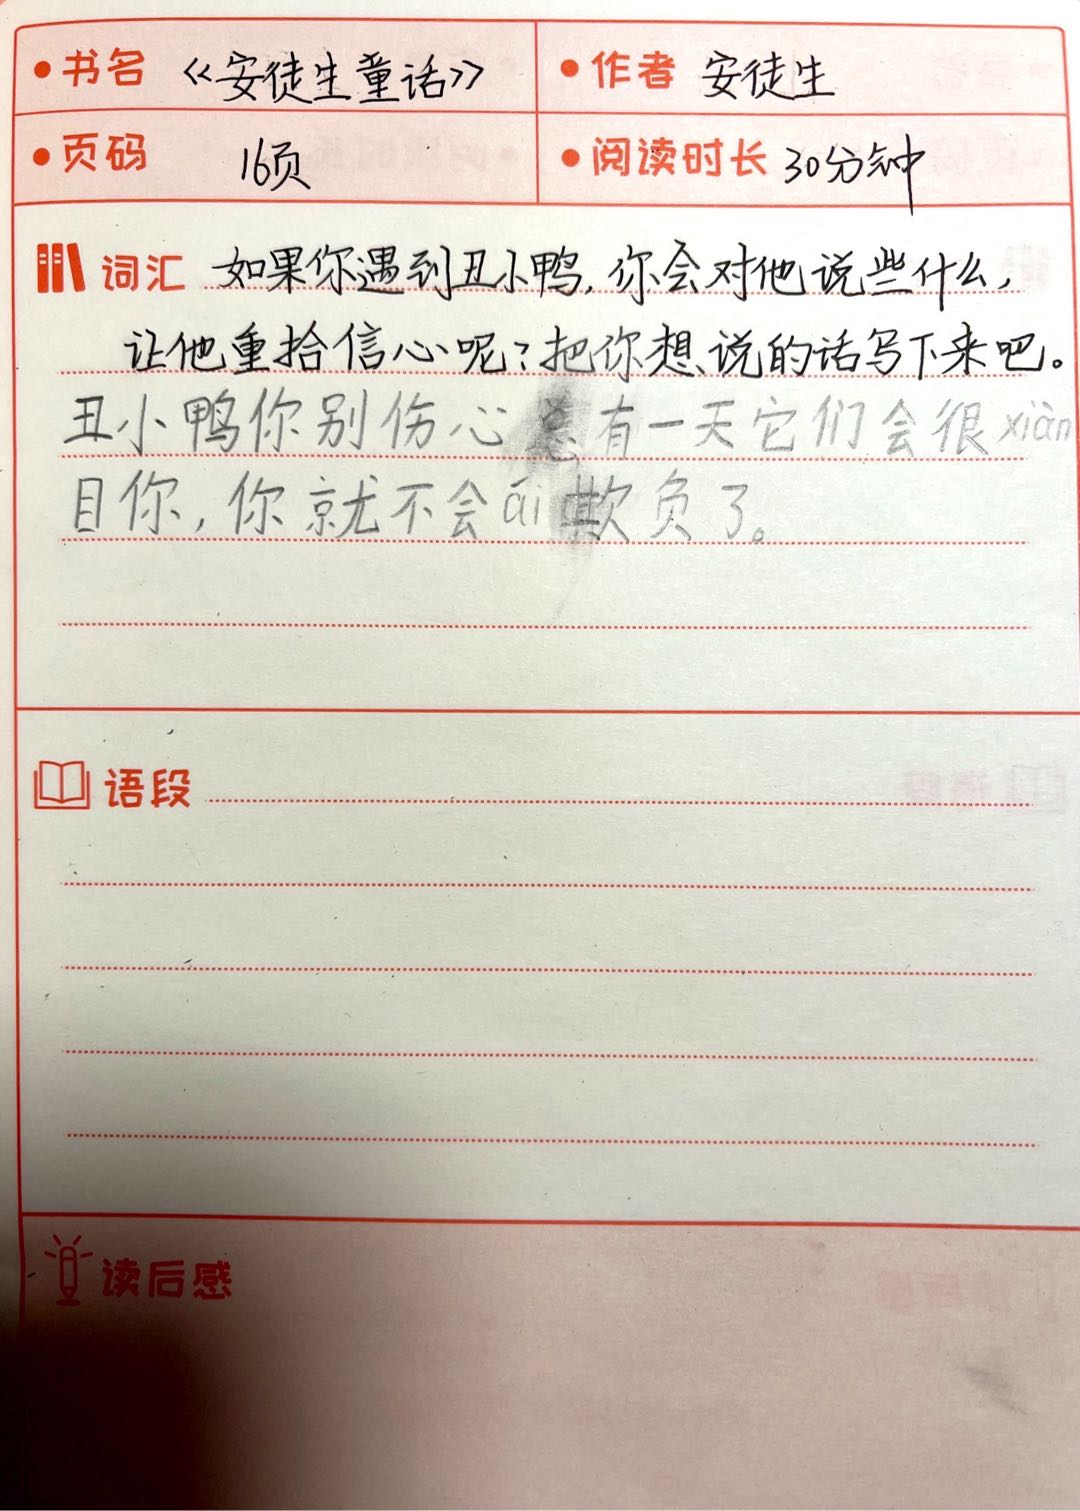 书名 《安徒生童话》 作者 安徒生
页码 16页 阅读时长 30分钟
词汇 如果你遇到丑小鸭,你会对他说些什么,
让他重拾信心呢?把你想说的话写下来吧。
丑小鸭你别伤心总有一天它们会很xiàn
目你,你就不会ái欺负了。
语段
读后感